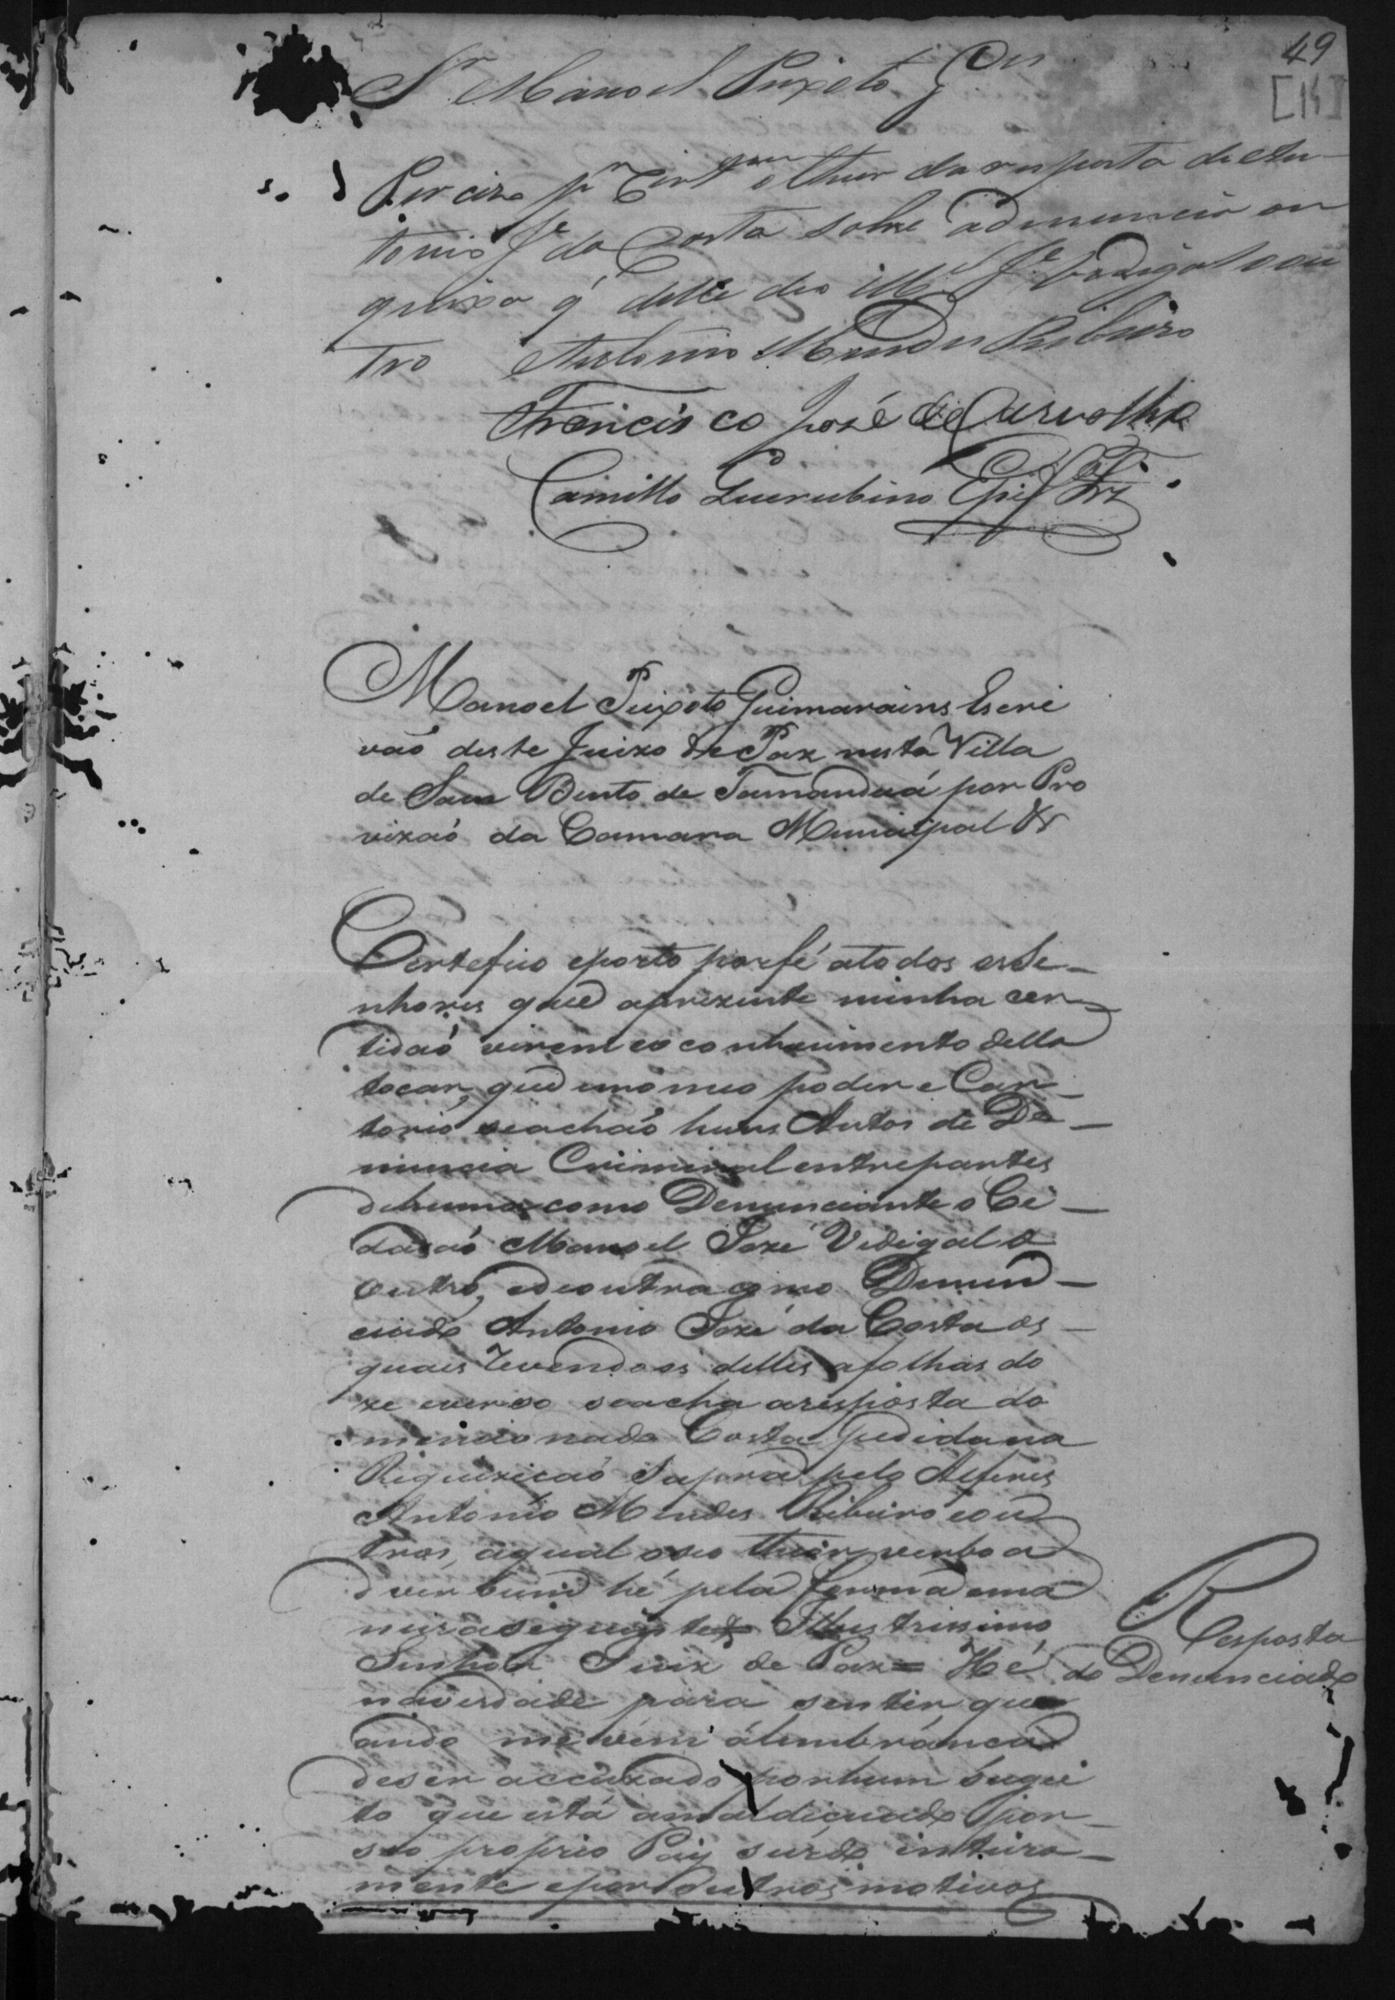 49
[14]
Sr Manoel Peixoto Ges
Perciza pr Certam o theor da resposta de An-
tonio Je da Costa sobre a denuncia ou
queixa q' delle deo Mel Je Vedigal e ou
tro Antonio Mendes Ribeiro
Francisco José de Carvalho
Camillo Querubino
Manoel Peixoto Guimarains Escri
vaõ deste Juizo de Paz nesta Villa
de Sam Bento de Tamanduá por Pro
vizaõ da Camara Municipal &
Certefico eporto porfé atodos os Se-
nhores que aprezente minha cer
tidaõ virem eo conhecimento della
tocar, que emomeo poder e Car-
torio seachaõ huns Autos de De-
nuncia Criminal entrepartes
dehuma como Denunciante o Ci-
dadaõ Manoel Jozé Vedigal e
outro, edeoutra como Denun-
ciado Antonio Jozé da Costa os-
quais revendoos delles afolhas do
ze everso seacha aresposta do
mencionado Costa pedida na
Requizicaõ Supra pelo Alferes
Antonio Mendes Ribeiro eou
tros, aqual oseo theor verbo a
dverbum hé pela forma ema
neiraseguinte= Illustrissimo
Senhor Juiz de Paz= Hé
naverdade para sentir, qu
ando me vem álembránca
deser accuzado porhum sugei
to que está amaldicuado por-
seo proprio Pay surdo inteira-
mente epor outros motivos
Resposta
do Denunciado